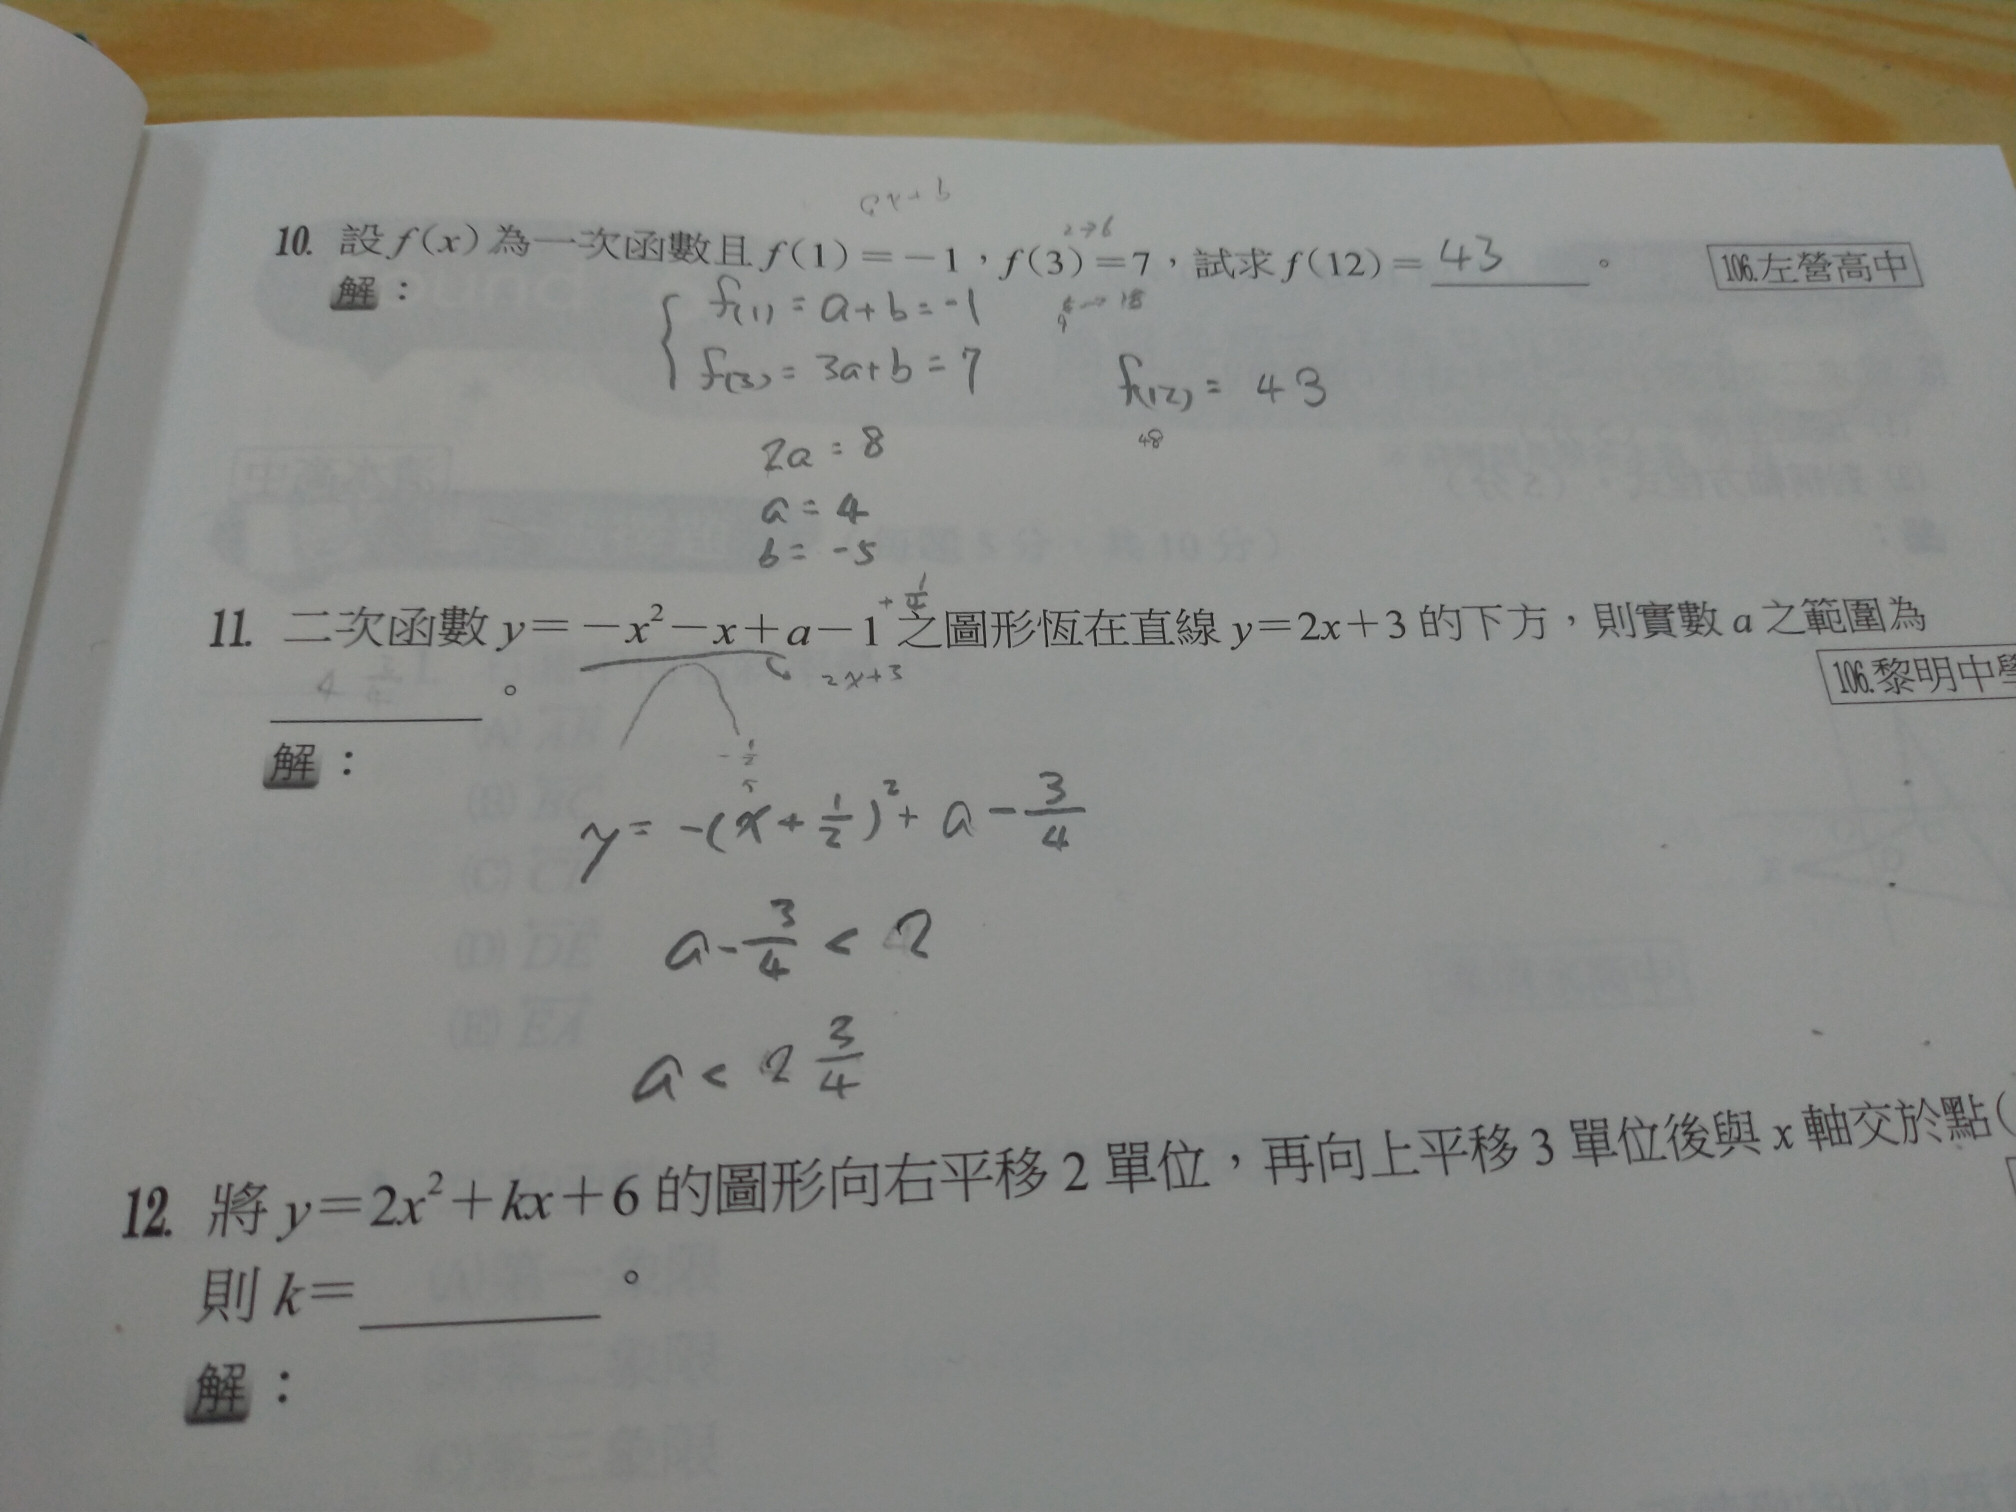 ax+b
10. 設 f(x) 為一次函數且 f(1)=-1，f(3)=7，試求 f(12)= 43 。 106.左營高中
2→6
解：
f(1) = a+b = -1
f(3) = 3a+b = 7
f(12) = 43
48
2a = 8
a = 4
b = -5
+1/4
11. 二次函數 y=-x²-x+a-1 之圖形恆在直線 y=2x+3 的下方，則實數 a 之範圍為
。 2x+3 106.黎明中學
4 3/4
解：
-1/2
y = -(x+1/2)² + a - 3/4
a - 3/4 < 2
a < 2 3/4
12. 將 y=2x²+kx+6 的圖形向右平移 2 單位，再向上平移 3 單位後與 x 軸交於點(
則 k= 。
解：